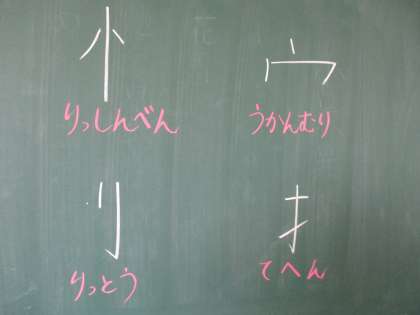 忄 宀
りっしんべん うかんむり
刂 扌
りっとう てへん